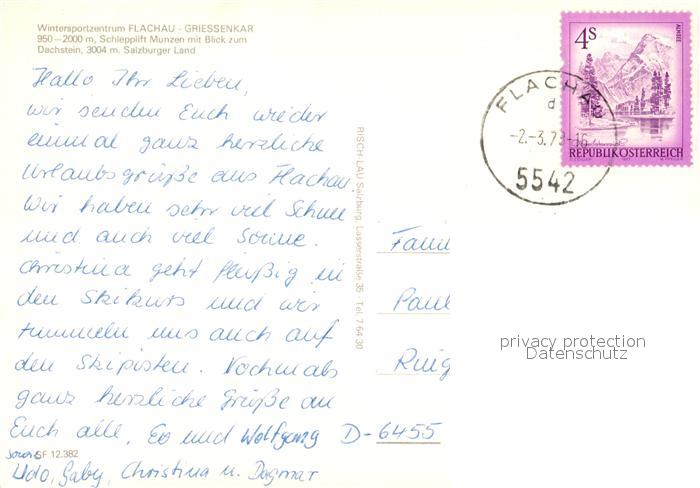 Wintersportzentrum FLACHAU - GRIESSENKAR
950 — 2000 m, Schlepplift Munzen mit Blick zum
Dachstein, 3004 m. Salzburger Land
Hallo Ihr Lieben,
wir senden Euch wieder
einmal ganz herzliche
Urlaubsgrüße aus Flachau.
Wir haben sehr viel Schnee
und auch viel Sonne.
Christina geht fleißig in
den Skikurs und wir
tummeln uns auch auf
den Skipisten. Nochmals
ganz herzliche Grüße an
Euch alle, Eo und Wolfgang
sowie
Udo, Gaby, Christina u. Dagmar
SF 12.382
RISCH-LAU Salzburg, Lasserstraße 35 Tel. 7 64 30
ALMSEE
4S
REPUBLIK ÖSTERREICH
FLACHAU
-2.-3.79-16
5542
Fami
Paul
Ring
D-6455
privacy protection
Datenschutz